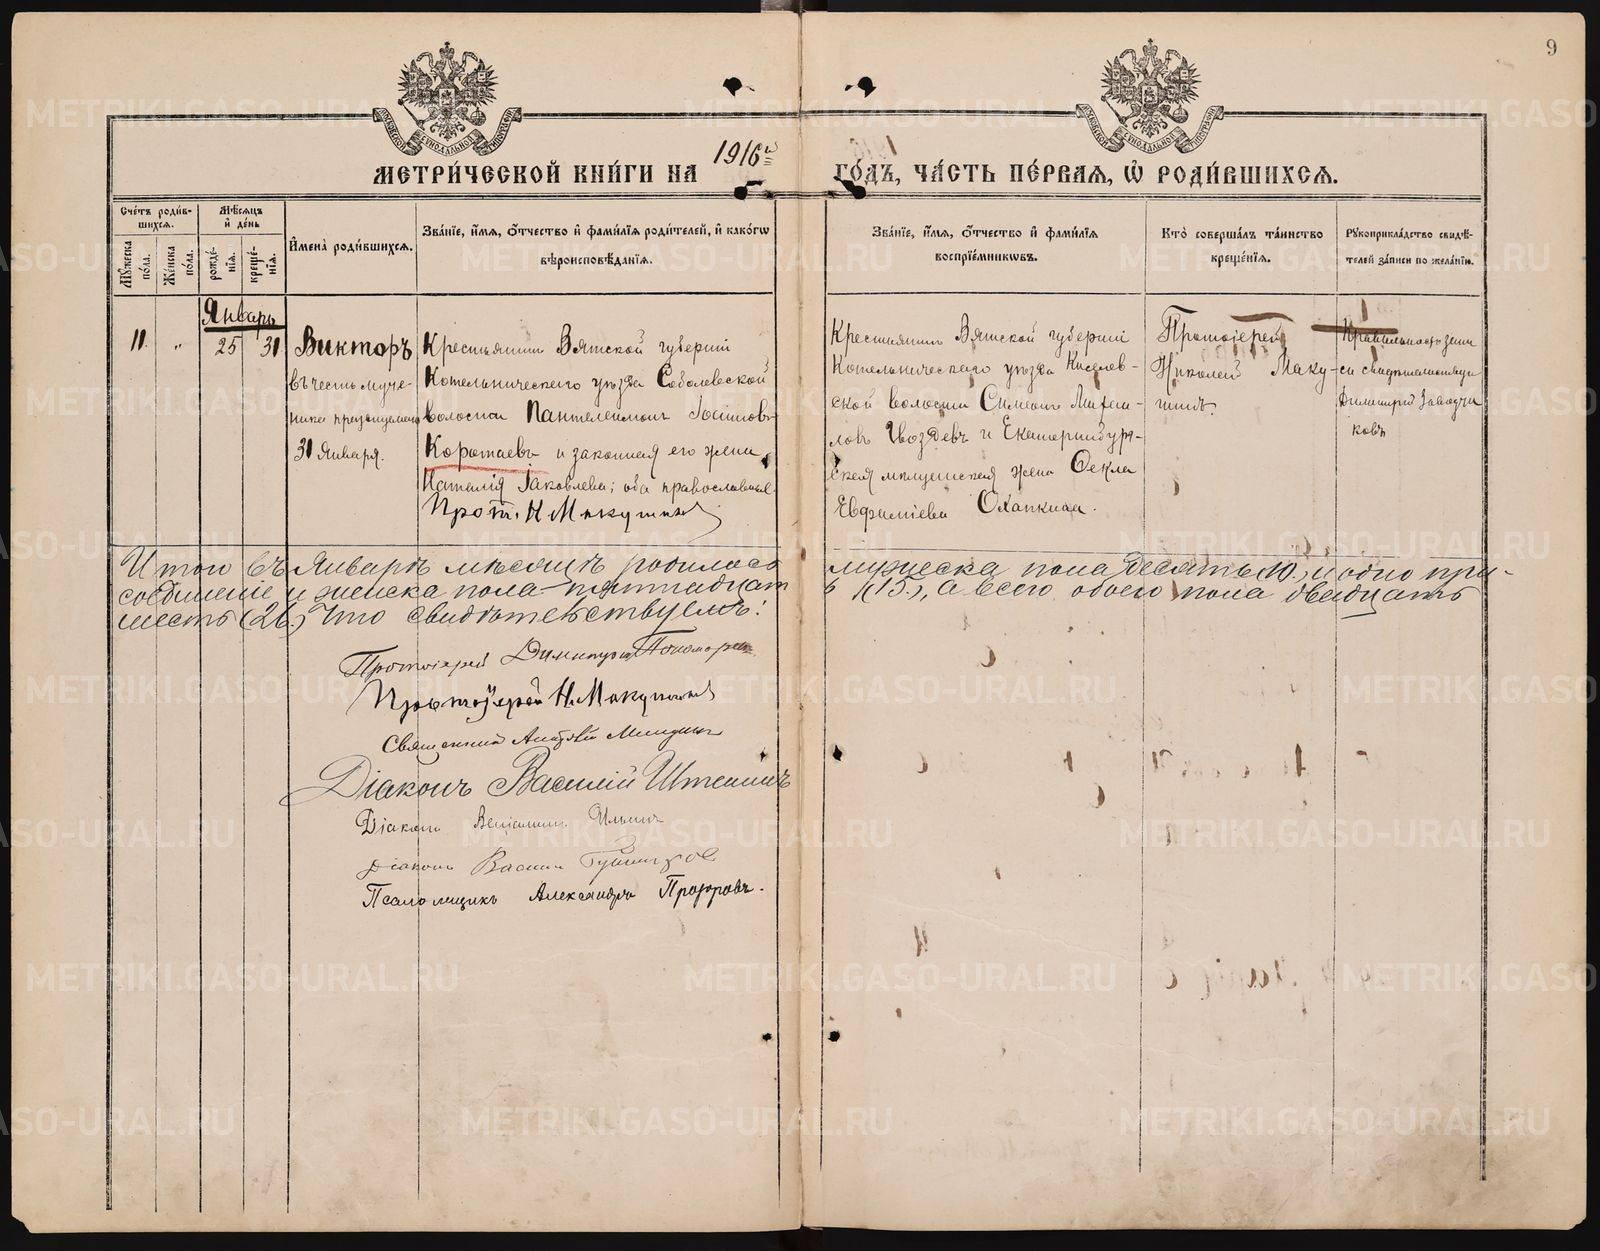 9
МЕТРИ́ЧЕСКОЙ КНИ́ГИ НА 1916й ГО́ДЪ, ЧА́СТЬ ПЕ́РВАЯ, Ѡ РОДИ́ВШИХСЯ.
Сче́тъ роди́в-
шихся.
Му́жеска по́ла.
Же́нска по́ла.
Мѣ́сяцъ и҆ де́нь
рожде́-нїя.
креще́-нїя.
И҆мена̀ роди́вшихся.
Зва́нїе, и҆́мя, ѻ҆́тчество и҆ фами́лїя роди́телей, и҆ како́гѡ
вѣроисповѣ́данїя.
Зва́нїе, и҆́мя, ѻ҆́тчество и҆ фами́лїя
воспрїе́мникѡвъ.
Кто̀ соверша́лъ та́инство
креще́нїя.
Рꙋкоприкла́дство свидѣ́-
телей за́писи по жела́нїю.
Январь
11. „ 25 31
Викторъ
въ честь муче-
ника празднуемаго
31 Января.
Крестьянинъ Вятской губернiи
Котельническаго уѣзда Соболевской
волости Пантелеимонъ Iосифовъ
Коротаевъ и законная его жена
Наталiя Iаковлева; оба православные
Прот. Н Макушинъ
Крестьянинъ Вятской губернiи
Котельническаго уѣзда Киселев-
ской волости Симеонъ Михаи-
ловъ Гвоздевъ и Екатеринбург-
ская мѣщанская жена Ѳекла
Евфимiева Охапкина.
Протоiерей
Николай Маку-
шинъ.
Правильность запи
си свидѣтельствую
Димитрiй Заводчи
ковъ
Итого въ Январѣ мѣсяцѣ родилось мужеска пола десять (10), и одно при-
соединенiе и женска пола пятнадцат ь (15), а всего обоего пола двадцать
шесть (26.) Что свидѣтельствуемъ:
Протоiерей Димитрiй Пономарев
Протоiерей Н. Макушинъ
Священникъ
Дiаконъ Василiй
Дiаконъ Венiаминъ Ильинъ
Дiаконъ Василiй
Псаломщикъ Александръ
METRIKI.GASO-URAL.RU